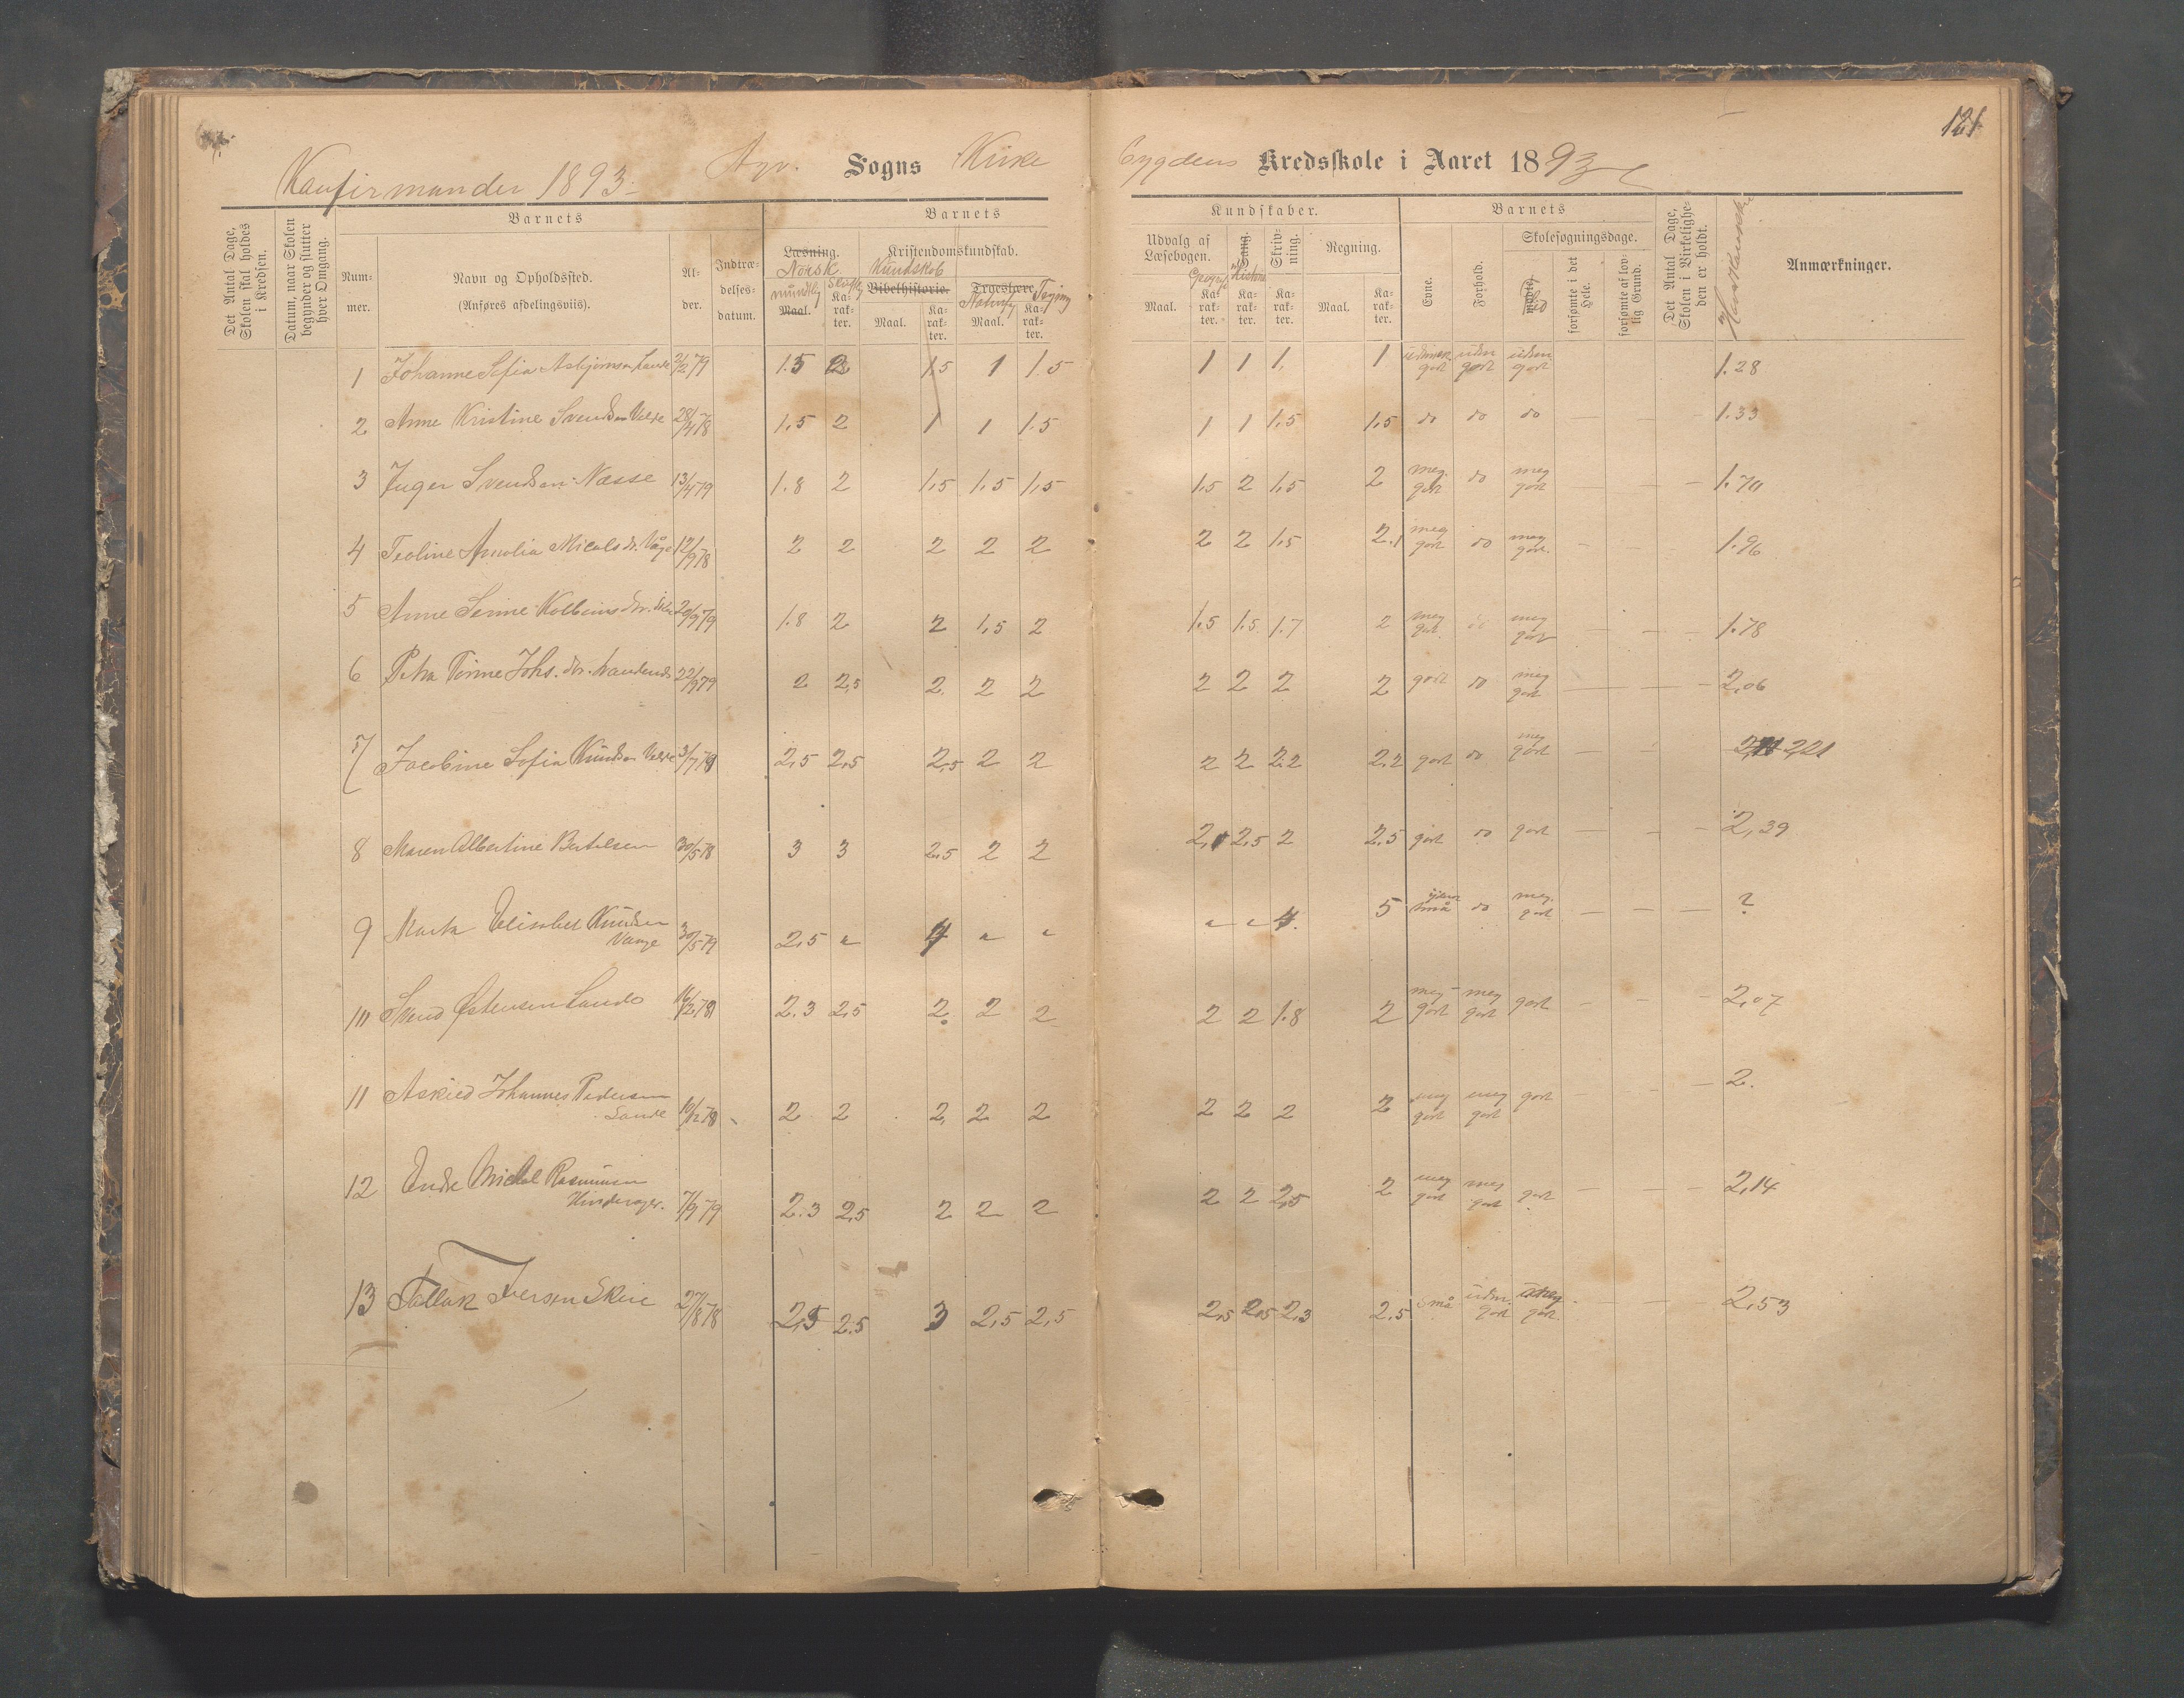 121
Konfirmander 1893
Sogns Kirke
bygdens Kredsskole i Aaret 1893
Det Antal Dage, Skolen skal holdes i Kredsen.
Datum, naar Skolen begynder og slutter hver Omgang.
Barnets
Nummer.
Navn og Opholdssted.
(Anføres afdelingsviis).
Alder.
Indtrædelsesdatum.
Barnets
Læsning.
Norsk.
mundtlig
Maal.
Karakter.
Kristendomskundskab.
Kundskab
Bibelhistorie.
Maal.
Karakter.
Troeslære.
Maal.
Karakter.
Kundskaber.
Udvalg af Læsebogen.
Maal.
Karakter.
Sang.
Histori
Karakter.
Skrivning.
Karakter.
Regning.
Maal.
Karakter.
Barnets
Evne.
Forhold.
Skolesøgningsdage.
mødte.
Flid
forsømte i det Hele.
forsømte af lovlig Grund.
Det Antal Dage, Skolen i Virkeligheden er holdt.
Anmærkninger.
1 Johanne Sofia Asbjørnsen Sande 2/2 79 1.5 2 1,5 1 1.5 1 1 1. 1 udmærk godt udm godt udm godt 1.28
2 Anne Kristine Svendsen Velde 28/4 78 1,5 2 1 1 1.5 1 1 1,5 1,5 do do do — — — 1.33
3 Inger Svendsen Næsse 13/4 79 1.8 2 1,5 1,5 1,5 1,5 2 1,5 2 meg. godt do meg godt — — — 1.70
4 Teoline Amalia Micalsdr. Våge 12/9 78 2 2 2 2 2 2 2 1,5 2.1 meg godt do meg godt. — — 1.96
5 Anne Serine Kolbeinsdtr. 20/9 79 1.8 2 2 1,5 2 1.5 1.5 1.7 2 meg godt do meg godt — — — 1.78
6 Petra Tomine Johs.dtr. 22/9 79 2 2,5 2. 2 2 2 2 2 2 godt do meg godt — — — 2,06
7 Jacobine Sofia Knudsen Velde 3/7 78 2,5 2,5 2,5 2 2 2 2 2.2 2.2 godt do meg godt — — 2,21
8 Maren Albertine Bertelsen 30/5 78 3 3 2,5 2 2 2, 2,5 2 2.5 godt do godt — — — 2,39
9 Marta Elisabet Knudsen
Vaage 30/5 79 2,5 " 4 " " " " 4. 5 små do meg. godt — — — ?
10 Svend Østensen Sande 16/2 78 2.3 2,5 2. 2 2 2 2 1.8 2 meg godt meg godt godt — — — 2,07
11 Askied Johannes Pedersen
Sande 10/12 78 2 2 2, 2 2 2 2 2 2 meg godt meg godt godt — — — 2.
12 Endre Michal Rasmussen
Hinderager. 7/9 79 2.3 2,5 2 2 2 2 2 2,5 2 meg godt meg godt godt — — — 2,14
13 Tallak Iversen Skeie 27/8 78 2,5 2.5 3 2,5 2,5 2,5 2,5 2,3 2.5 små udm. godt meg godt. — — — 2,53